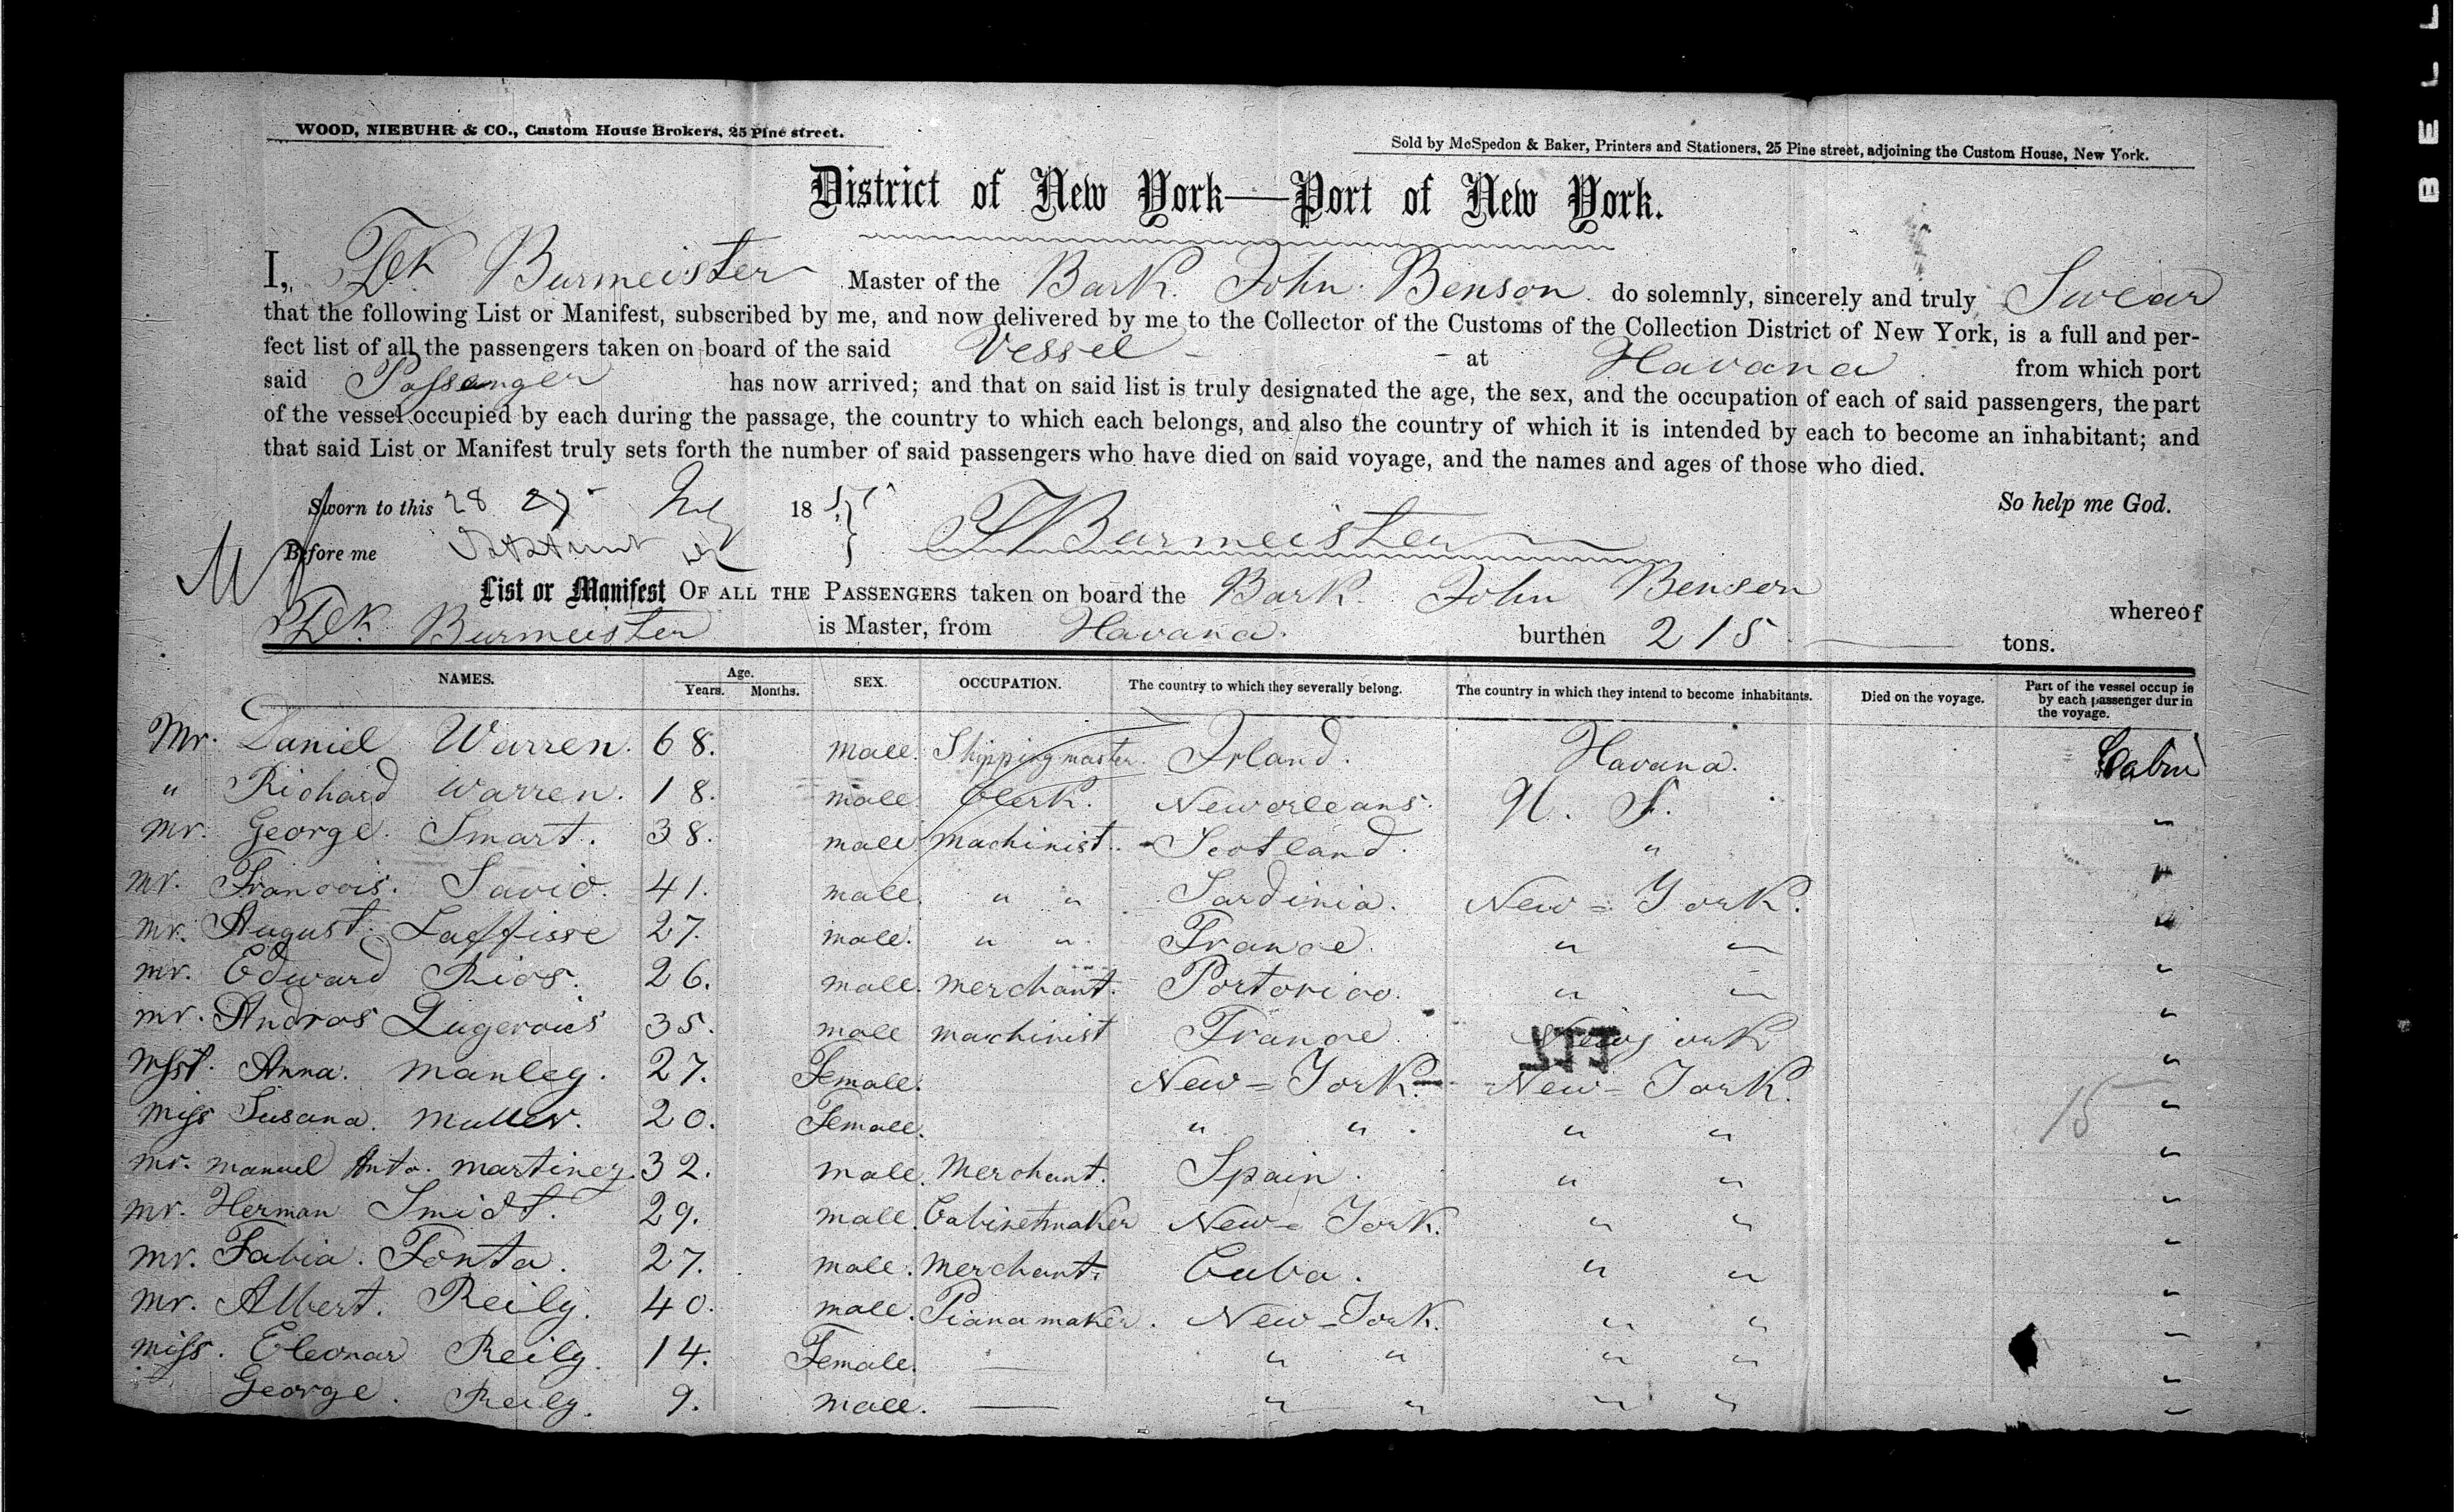 WOOD, NIEBUHR & CO., Custom House Brokers, 25 Pine street.
Sold by McSpedon & Baker, Printers and Stationers, 25 Pine street, adjoining the Custom House, New York.
District of New York—Port of New York.
I, Burmeister Master of the Bark John Benson do solemnly, sincerely and truly Swear
that the following List or Manifest, subscribed by me, and now delivered by me to the Collector of the Customs of the Collection District of New York, is a full and per-
fect list of all the passengers taken on board of the said Vessel - - at Havana from which port
said Passenger has now arrived; and that on said list is truly designated the age, the sex, and the occupation of each of said passengers, the part
of the vessel occupied by each during the passage, the country to which each belongs, and also the country of which it is intended by each to become an inhabitant; and
that said List or Manifest truly sets forth the number of said passengers who have died on said voyage, and the names and ages of those who died.
Sworn to this 28 July 1857 So help me God.
Before me Burmeister
List or Manifest OF ALL THE PASSENGERS taken on board the Bark John Benson whereof
Burmeister is Master, from Havana. burthen 215 tons.
NAMES. Age. Years. Months. SEX. OCCUPATION. The country to which they severally belong. The country in which they intend to become inhabitants. Died on the voyage. Part of the vessel occup ie by each passenger dur in the voyage.
Mr. Daniel Warren. 68. male. Shippingmaster. Irland. Havana. Cabin
" Richard Warren. 18. male. Clerk. Neworleans. U. S. "
Mr. George Smart. 38. male. Machinist. - Scotland. " "
Mr. Francois. Savio. 41. male. " " Sardinia. New=York. "
Mr. August. Laffisse 27. male. " " France. " " "
Mr. Edward Rios. 26. male. Merchant. Portorico. " " "
Mr. Andros Lugerouis 35. male machinist France New York "
Anna. Manley. 27. Female. New=York. New=York. "
Miss Susana. Muller. 20. Female. " " " " "
Mr. Manuel Anto. Martinez. 32. male. Merchant. Spain. " " "
Mr. Herman Smidt. 29. male. Cabinetmaker New=York. " " "
Mr. Fabia. Fonta. 27. male. Merchant. Cuba. " " "
Mr. Albert. Reily. 40. male. Pianamaker. New-York. " " "
Miss. Eleonar Reily. 14. Female. — " " " " "
George. Reily. 9. male. — " " " " "
15
BELL